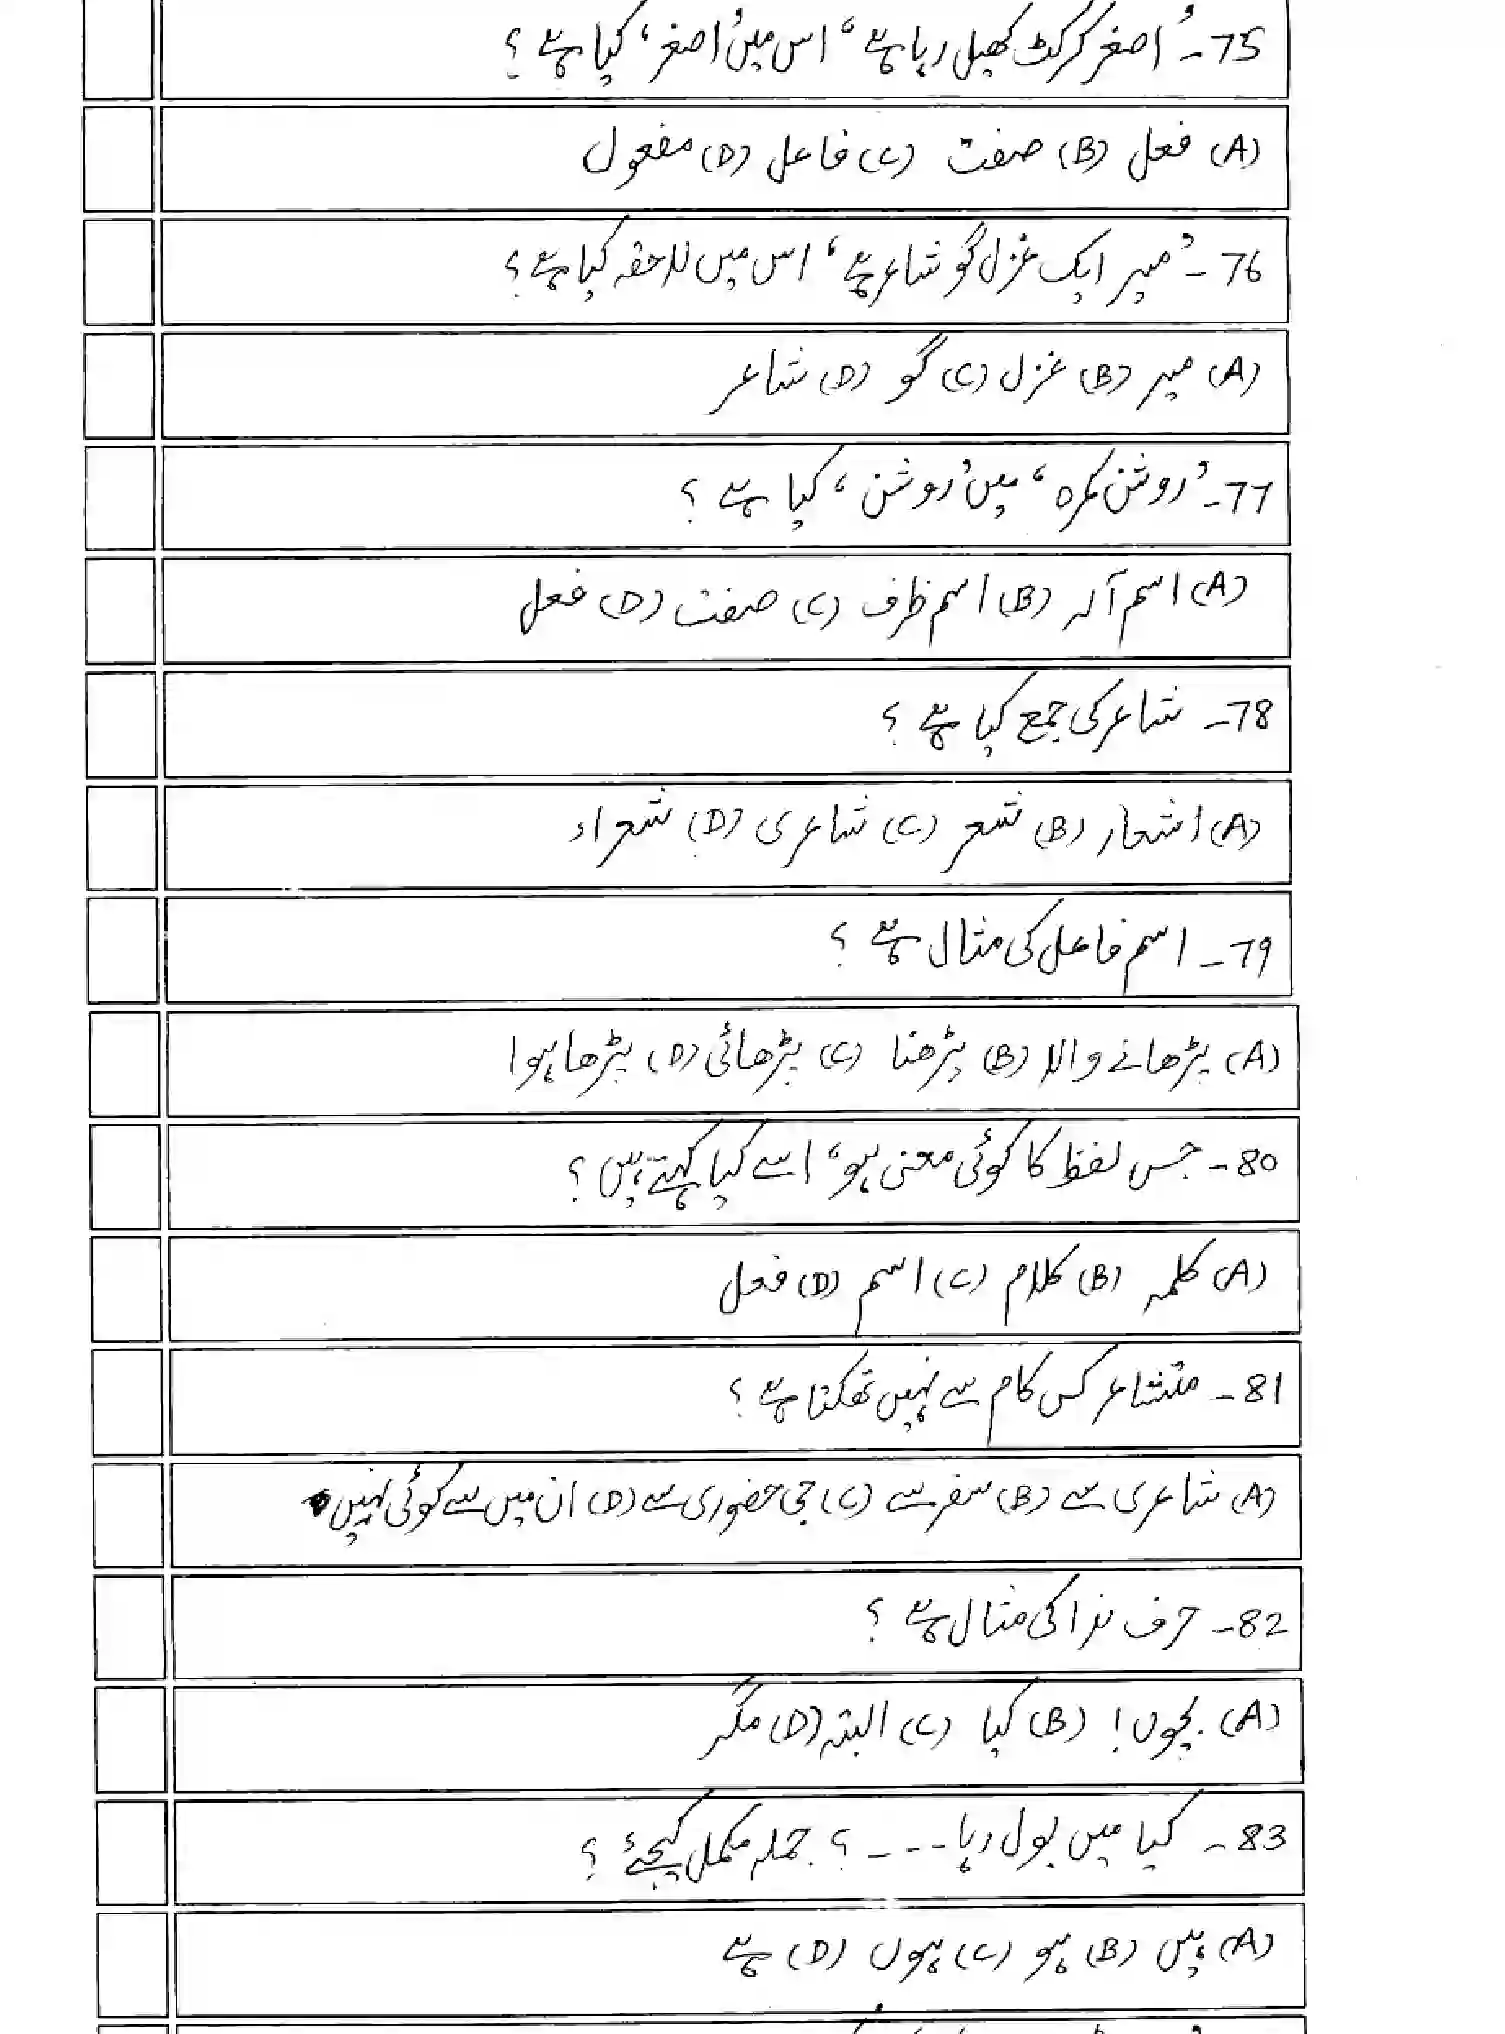 75۔ ’اصغر کرکٹ کھیل رہا ہے‘ اس میں ’اصغر‘ کیا ہے؟
(A) فعل (B) صفت (C) فاعل (D) مفعول
76۔ ’میر ایک غزل گو شاعر ہے‘ اس میں لاحقہ کیا ہے؟
(A) میر (B) غزل (C) گو (D) شاعر
77۔ ’روشن کمرہ‘ میں ’روشن‘ کیا ہے؟
(A) اسم آلہ (B) اسم ظرف (C) صفت (D) فعل
78۔ شاعر کی جمع کیا ہے؟
(A) اشعار (B) شعر (C) شاعری (D) شعراء
79۔ اسم فاعل کی مثال ہے؟
(A) پڑھانے والا (B) پڑھنا (C) پڑھائی (D) پڑھا ہوا
80۔ جس لفظ کا کوئی معنی ہو، اسے کیا کہتے ہیں؟
(A) کلمہ (B) کلام (C) اسم (D) فعل
81۔ متشاعر کس کام سے نہیں تھکتا ہے؟
(A) شاعری سے (B) سفر سے (C) جی حضوری سے (D) ان میں سے کوئی نہیں
82۔ حرف ندا کی مثال ہے؟
(A) بچوں! (B) کیا (C) البتہ (D) مگر
83۔ کیا میں بول رہا ۔۔۔۔؟ جملہ مکمل کیجئے؟
(A) ہیں (B) ہو (C) ہوں (D) ہے